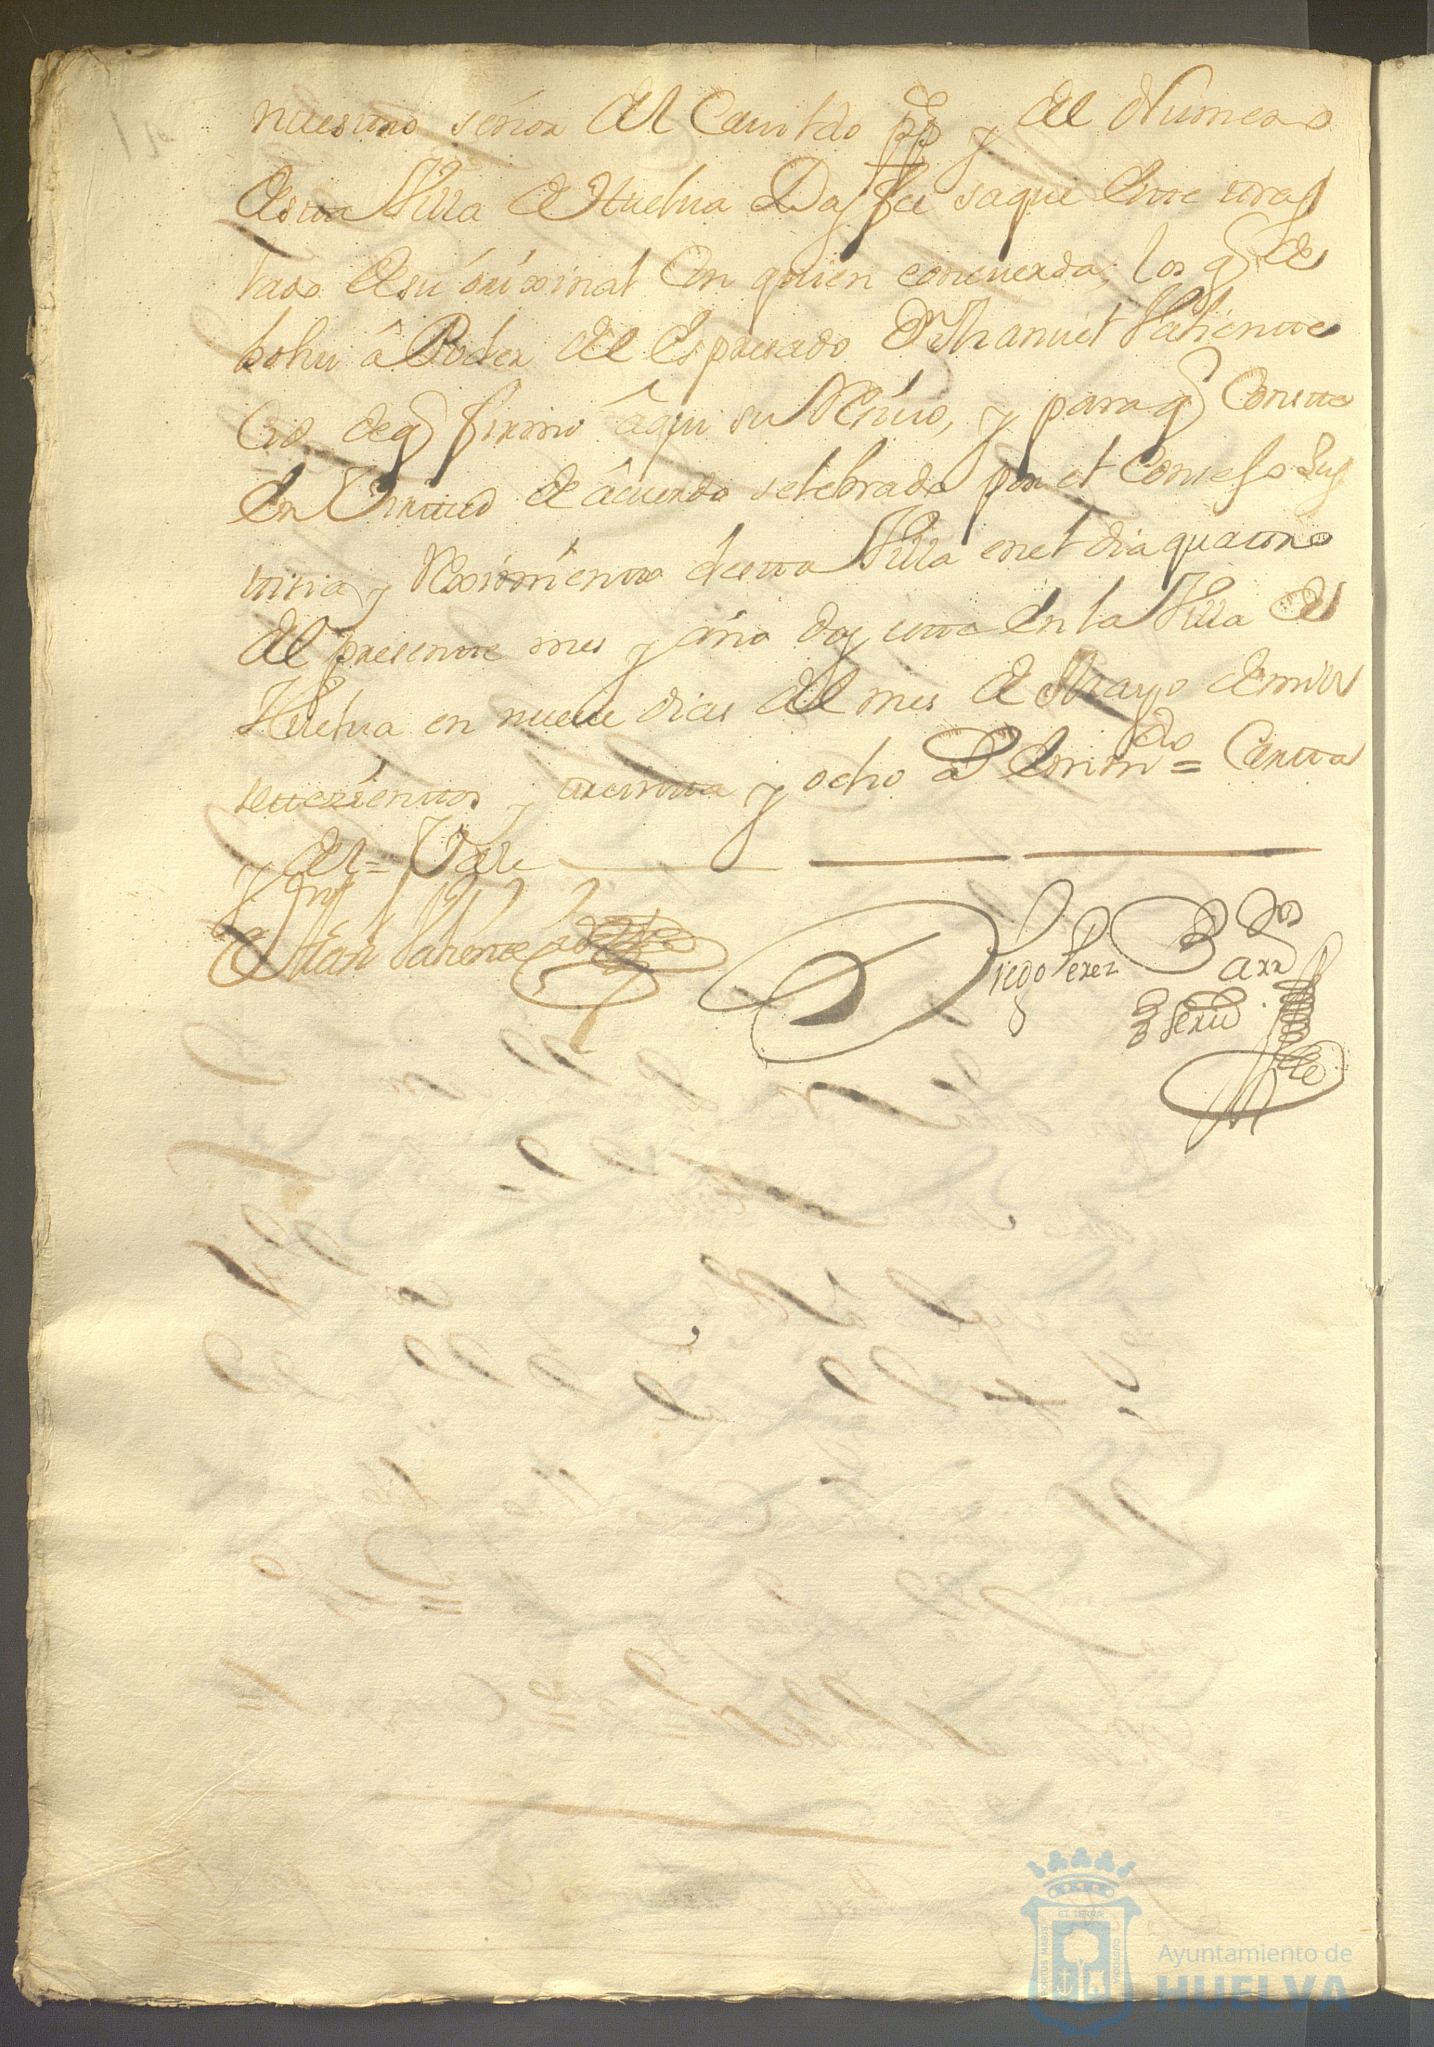 nuestro señor del Cauildo pp.co y del Numero
desta Villa de Huelua Doy fee saque este tras
lado de su órixinal con quien concuerda, los q.s de
bolui â Poder del Espresado D.n Manuel Patiente
de q.e firmo âqui su Reciuo, y para q.e Conste
En Virtud de âcuerdo selebrado por el Consejo Jus
tisia y Reximiento desta Villa en el dia quatro
del presente mes y año doy este En la Villa de
Huelua en nueue dias del mes de Mayo de mill
setecientos y treinta y ocho a.s Enm.do = Carta
y del = Vale
Man.l Patiente
Diego Perez
Ayuntamiento de
HUELVA